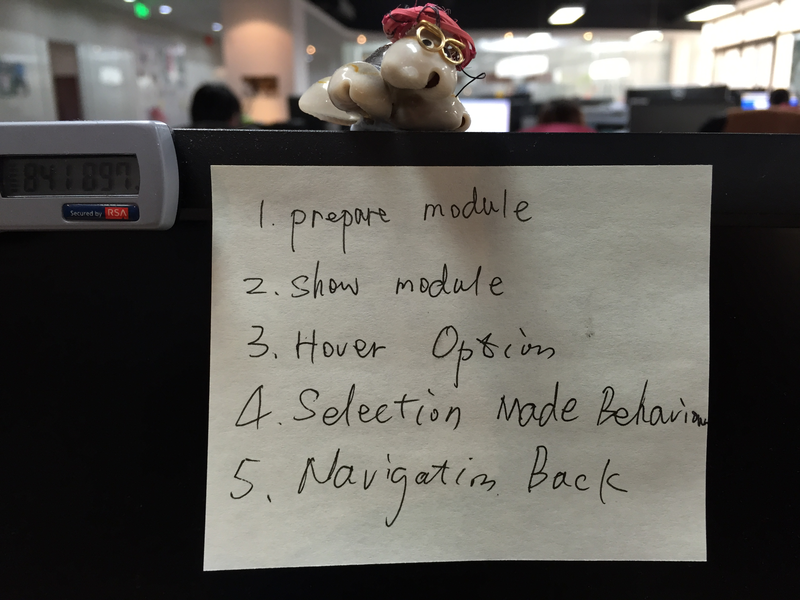 841897
Secured by RSA
1. prepare module
2. show module
3. Hover Option
4. Selection Made Behavior
5. Navigation Back